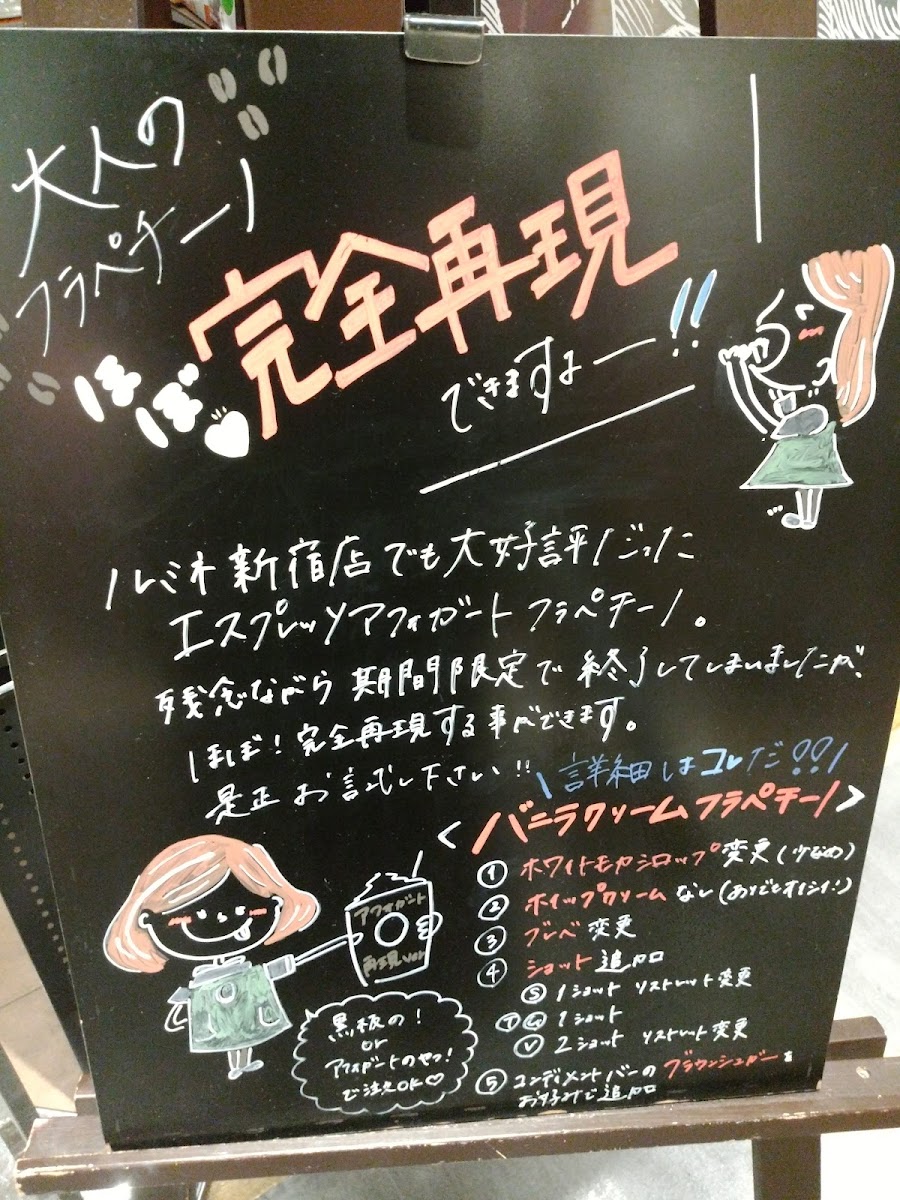 大人の
フラペチーノ
ほぼ
完全再現
できますよー!!
ルミネ新宿店でも大好評だった
エスプレッソアフォガートフラペチーノ。
残念ながら期間限定で終了してしまいましたが、
ほぼ!完全再現する事ができます。
是正お試し下さい!!
\詳細はコレだ!!/
<バニラクリームフラペチーノ>
① ホワイトモカシロップ変更(少なめ)
② ホイップクリームなし(ありでもオイシイ!)
③ ブレベ変更
④ ショット追加
Ⓢ 1ショット リストレット変更
ⓉⒼ 1ショット
Ⓥ 2ショット リストレット変更
⑤ コンディメントバーのブラウンシュガーを
お好みで追加
アフォガート
再現ver
黒板の!
or
アフォガートのやつ!
で注文OK♡